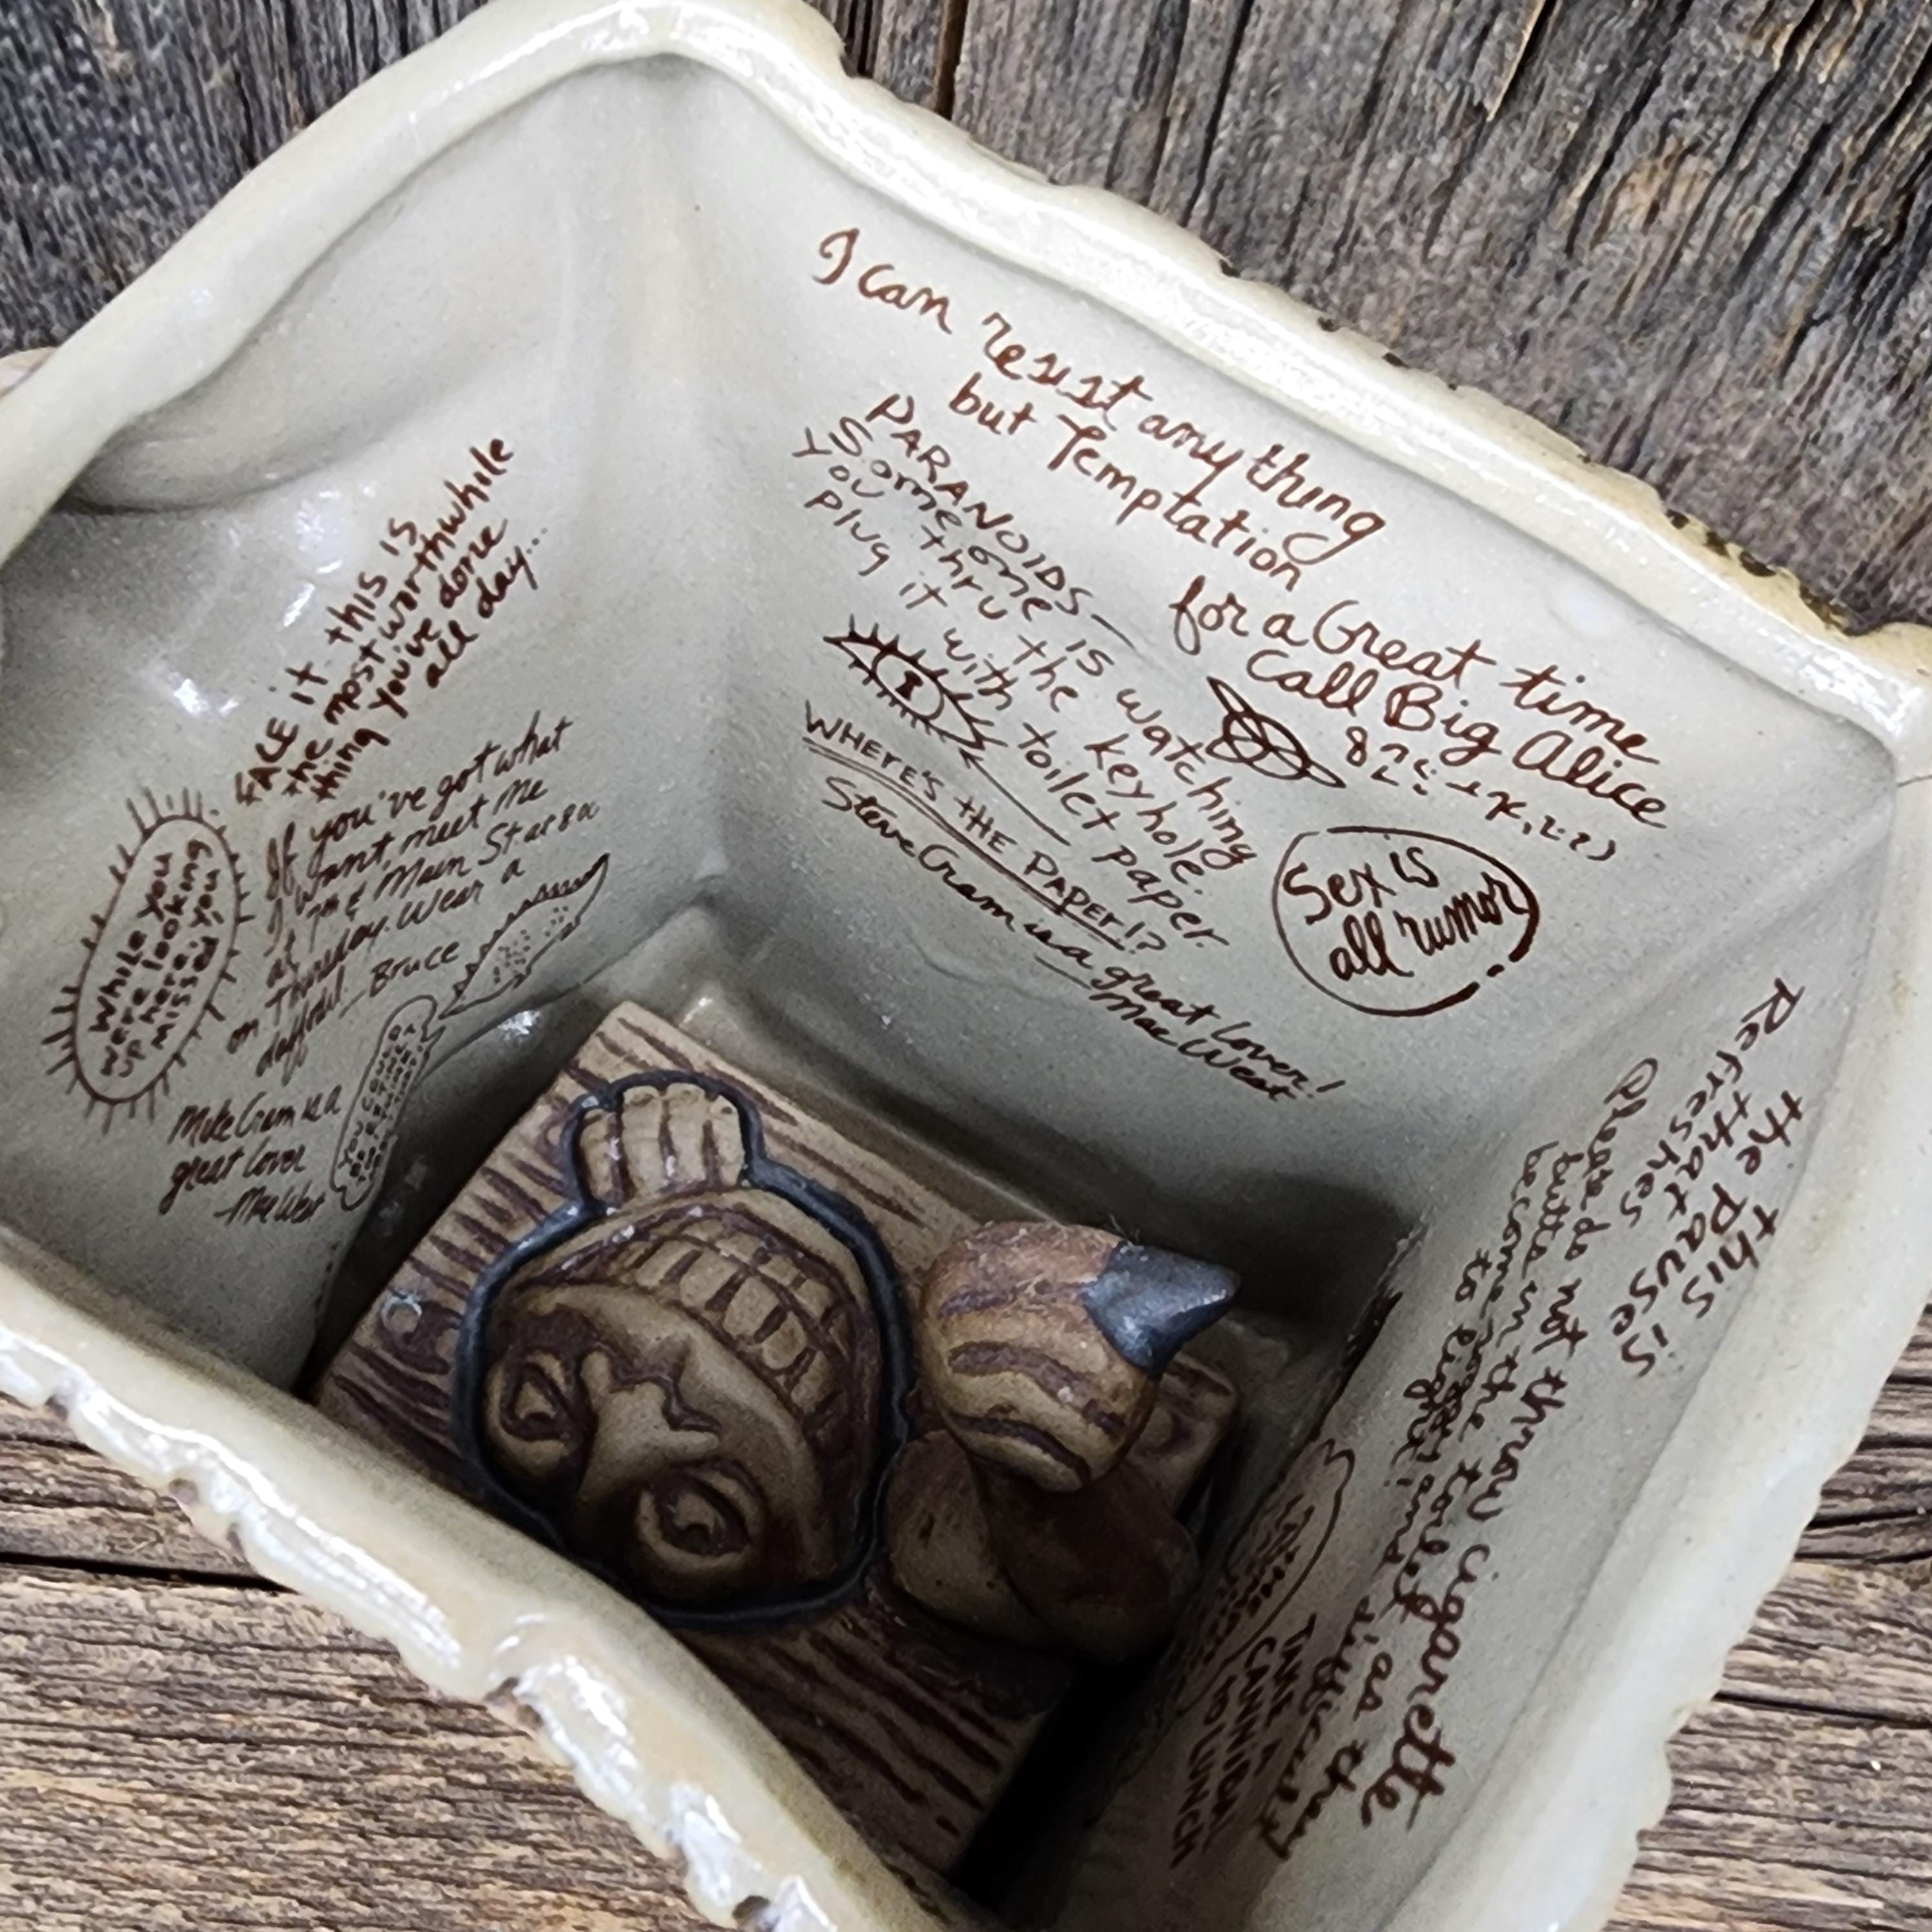 FACE it this is
the most worthwhile
thing you've done
all day...
While you
were looking
up here, you
missed
If you've got what
I want, meet me
at 7th & Main St at 8
on Thursday. Wear a
daffodil - Bruce
Mike Cram is a
great lover
-Mae West
I can resist anything
but Temptation
PARANOIDS—
Someone is watching
you thru the keyhole.
Plug it with toilet paper.
WHERE'S THE PAPER!?
Steve Cram is a great lover!
Mae West
for a Great time
Call Big Alice
Sex is
all rumor
this is
the pause
that
Refreshes
Please do not throw cigarette
butts in the toilet
become and as they
to light!
TAKE A
CANNIBAL
TO LUNCH